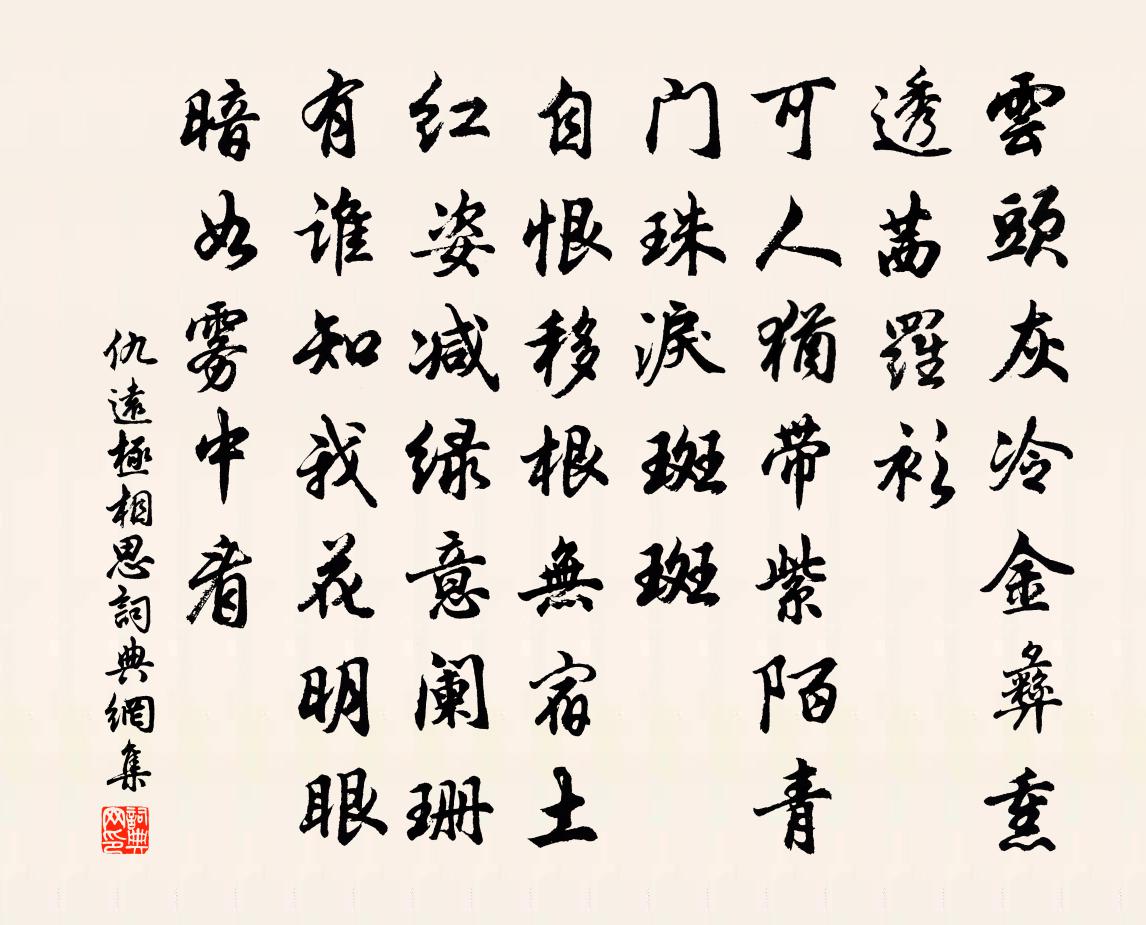 雲頭灰冷金彝熏
透茜羅衫
可人猶带紫陌青
门珠淚斑斑
自恨移根無宿土
红姿减绿意阑珊
有谁知我花明眼
暗如雾中看
仇遠極相思詞典網集
詞典网印